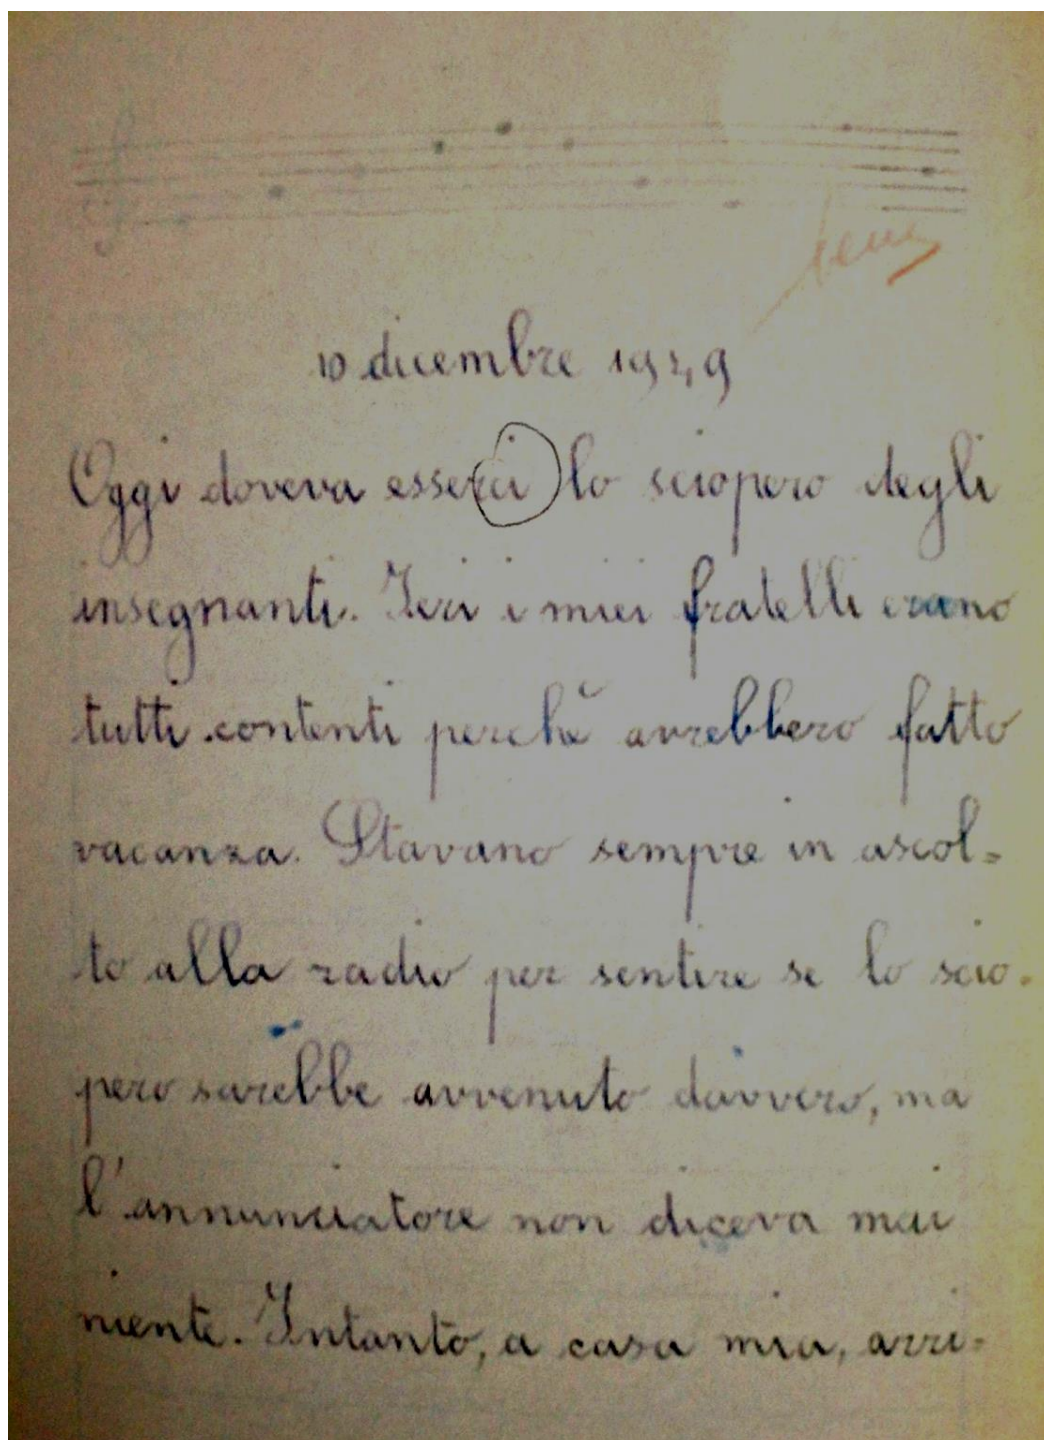 bene
10 dicembre 1949
Oggi doveva esserci lo sciopero degli
insegnanti. Ieri i miei fratelli erano
tutti contenti perchè avrebbero fatto
vacanza. Stavano sempre in ascol=
to alla radio per sentire se lo scio-
pero sarebbe avvenuto davvero, ma
l'annunciatore non diceva mai
niente. Intanto, a casa mia, arri=